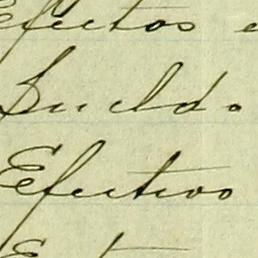 Efectos
Sueldo
Efectivo